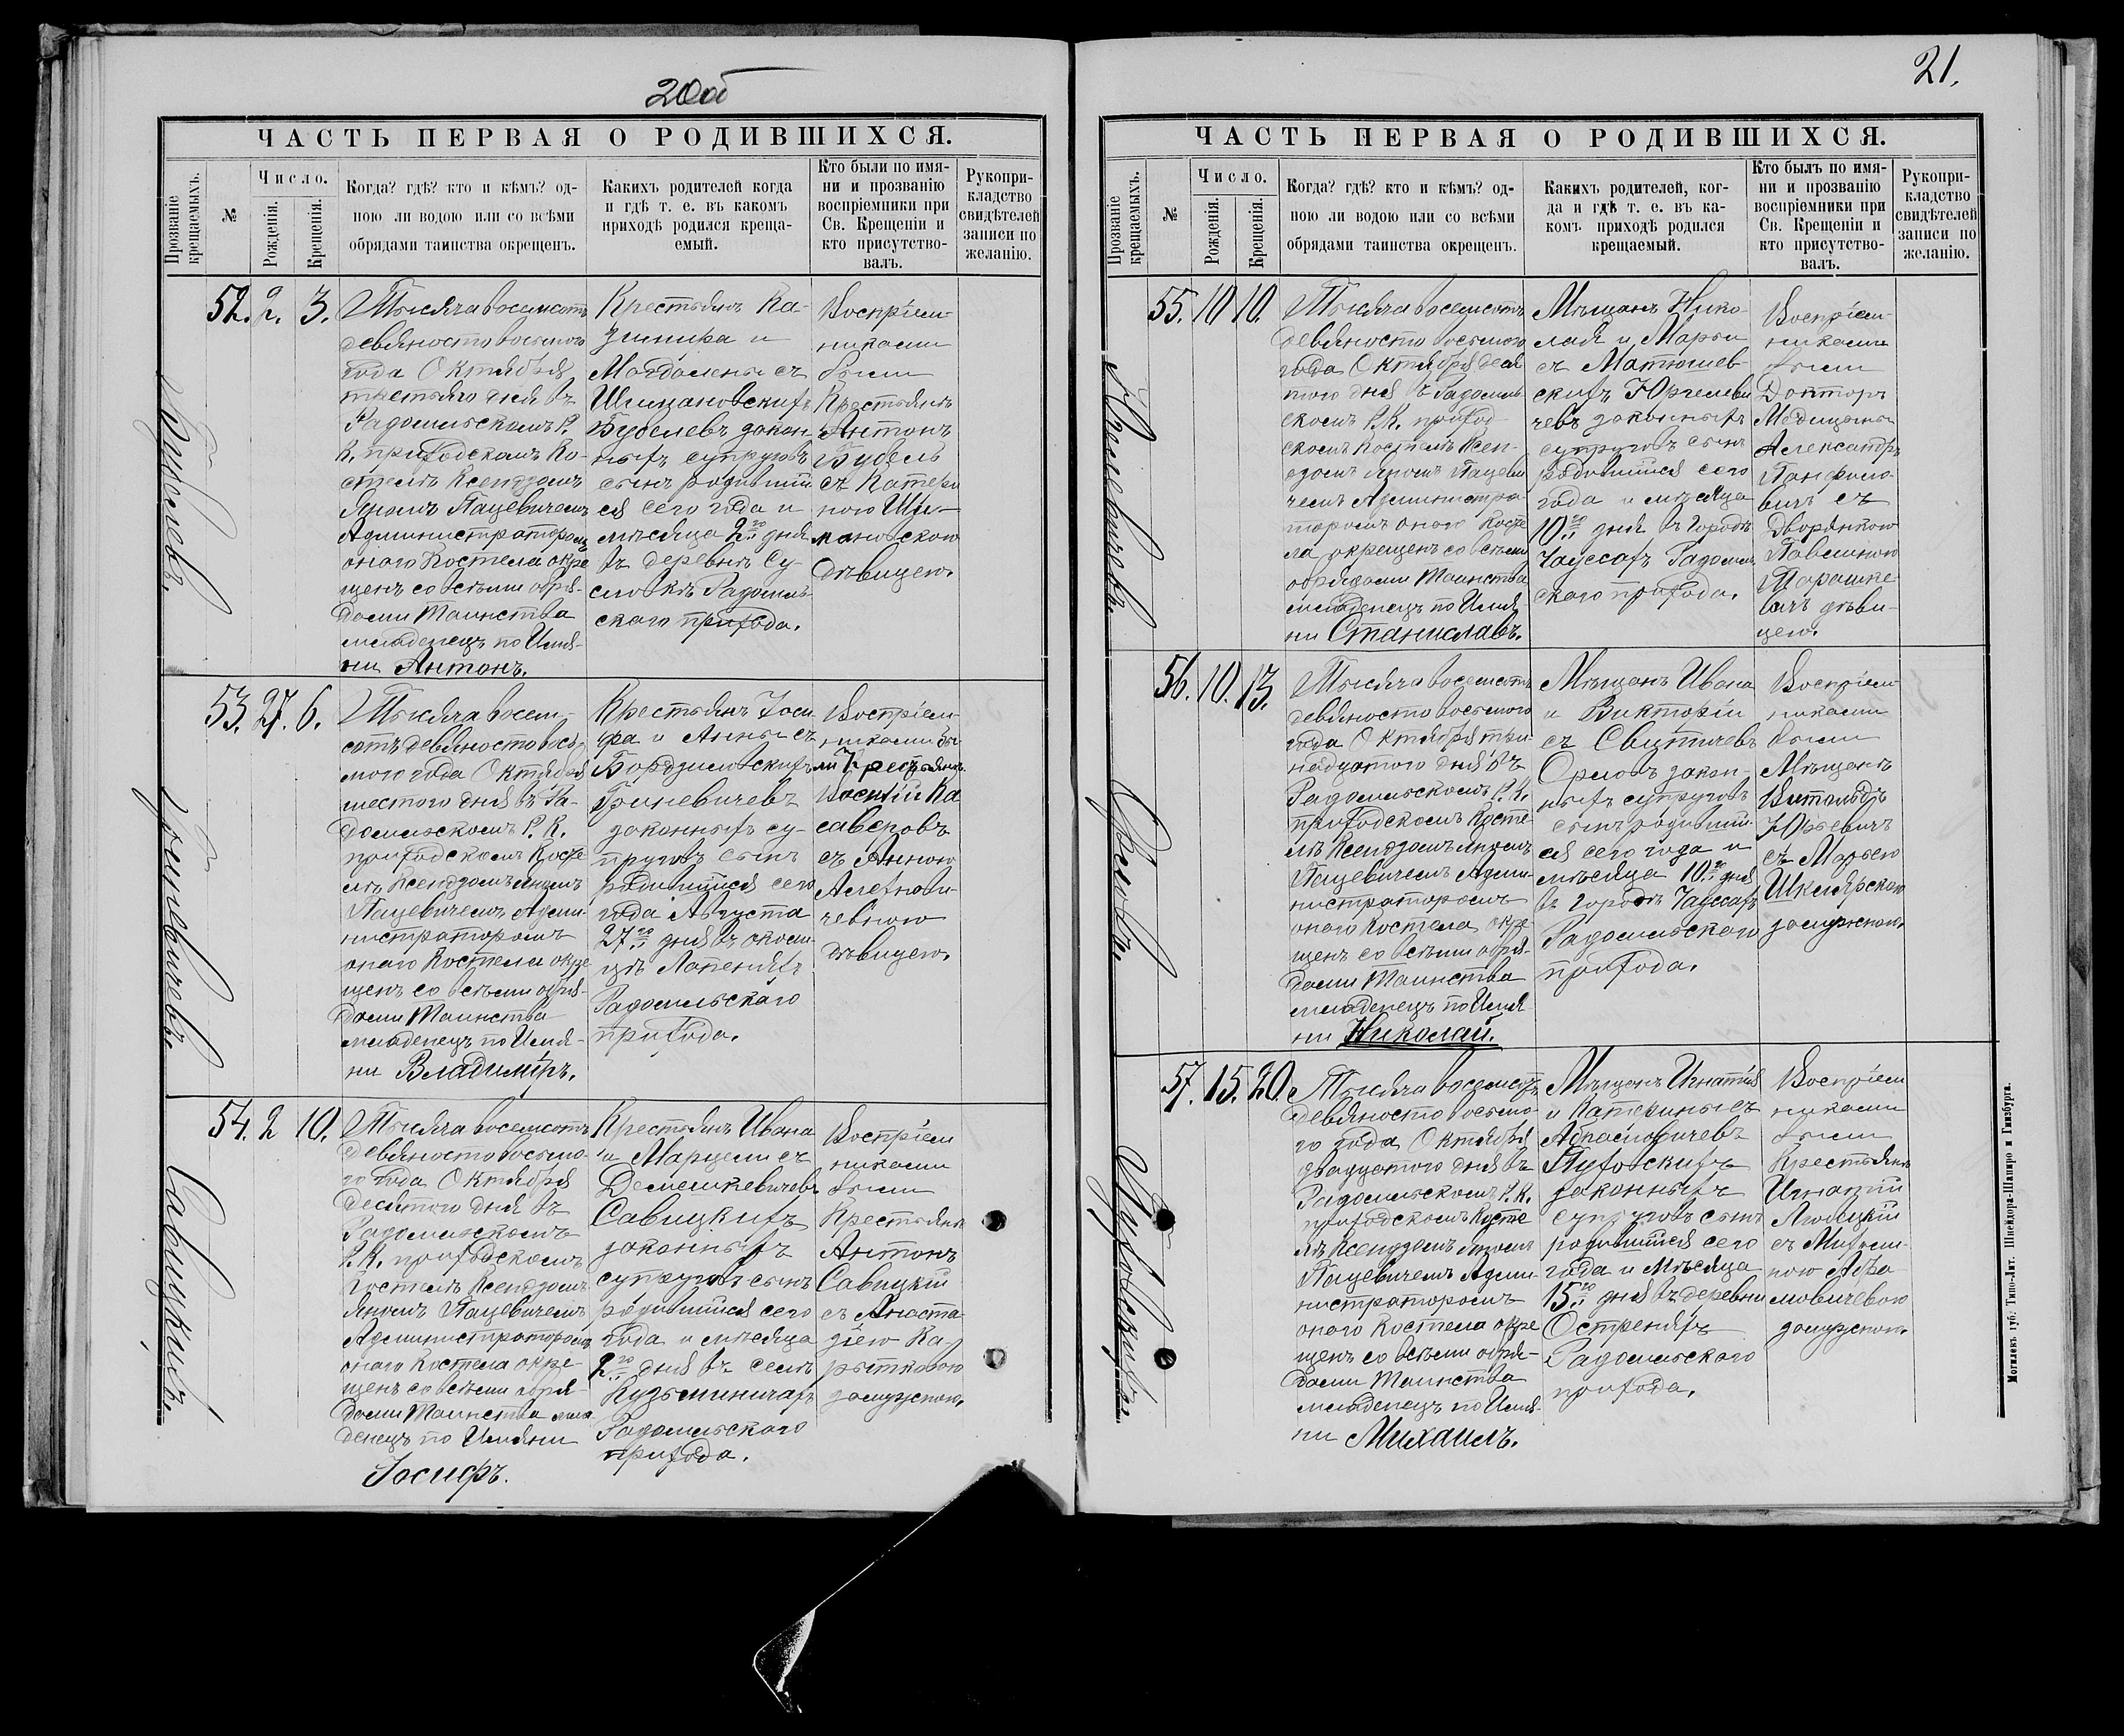 20об
ЧАСТЬ ПЕРВАЯ О РОДИВШИХСЯ.
Прозваніе крещаемыхъ.
№
Число.
Рожденія.
Крещенія.
Когда? гдѣ? кто и кѣмъ? од-
ною ли водою или со всѣми
обрядами таинства окрещенъ.
Какихъ родителей когда
и гдѣ т. е. въ какомъ
приходѣ родился креща-
емый.
Кто были по имя-
ни и прозванію
воспріемники при
Св. Крещеніи и
кто присутство-
валъ.
Рукопри-
кладство
свидѣтелей
записи по
желанію.
Буселевъ.
52. 2. 3.
Тысяча восемсотъ
девяносто восьмого
года Октября
третьяго дня въ
Радомльскомъ Р.
К. приходскомъ Ко-
стелѣ Ксендзомъ
Яномъ Пацевичемъ
Администраторомъ
оного Костела окре
щенъ со всѣми обря-
дами Таинства
младенецъ по Имя-
ни Антонъ.
Крестьянъ Ка-
зимира и
Магдалены съ
Шимановскихъ
Буселевъ закон
ныхъ супруговъ
сынъ родивший
ся сего года и
мѣсяца 2го дня
въ деревнѣ Су-
словкѣ Радомль-
скаго прихода.
Воспріем-
никами
были
Крестьянъ
Антонъ
Бусель
съ Катери
ною Ши-
мановскою
дѣвицею.
Гриневичевъ.
53. 27. 6.
Тысяча восем-
сотъ девяносто вось
мого года Октября
шестого дня въ Ра-
домльскомъ Р. К.
приходскомъ Косте
лѣ Ксендзомъ Яномъ
Пацевичемъ Адми-
нистраторомъ
оного Костела окре
щенъ со всѣми обря-
дами Таинства
младенецъ по Имя-
ни Владиміръ.
Крестьянъ Іоси
фа и Анны съ
Бордзиловскихъ
Гриневичевъ
законныхъ су-
пруговъ сынъ
родившийся сего
года Августа
27го дня въ околи-
цѣ Лапеняхъ
Радомльскаго
прихода.
Воспріем-
никами бы
ли Крестьянъ
съ Анною
дѣвицею.
Савицкихъ.
54. 2 10.
Тысяча восемсотъ
девяносто восьмо-
го года Октября
десятого дня въ
Радомльскомъ
Р. К. приходскомъ
Костелѣ Ксендзомъ
Яномъ Пацевичемъ
Администраторомъ
оного Костела окре-
щенъ со всѣми обря-
дами Таинства мла-
денецъ по Имяни
Іосифъ.
Крестьянъ Ивана
и Марцели съ
Демешкевичевъ
Савицкихъ
законныхъ
супруговъ сынъ
родившийся сего
года и мѣсяца
2го дня въ селѣ
Кузьминичахъ
Радомльского
прихода.
Воспріем
никами
были
Крестьянъ
Антонъ
Савицкій
съ Анаста-
зіею Ка-
рытковою
замужною.
21.
ЧАСТЬ ПЕРВАЯ О РОДИВШИХСЯ.
Прозваніе крещаемыхъ.
№
Число.
Рожденія.
Крещенія.
Когда? гдѣ? кто и кѣмъ? од-
ною ли водою или со всѣми
обрядами таинства окрещенъ.
Какихъ родителей, ког-
да и гдѣ т. е. въ ка-
комъ приходѣ родился
крещаемый.
Кто былъ по имя-
ни и прозванію
воспріемники при
Св. Крещеніи и
кто присутство-
валъ.
Рукопри-
кладство
свидѣтелей
записи по
желанію.
Юргелевичевъ.
55. 10 10.
Тысяча восемсотъ
девяносто восьмого
года Октября деся
того дня въ Радомль
скомъ Р. К. приход
скомъ Костелѣ Ксен-
дзомъ Яномъ Пацеви
чемъ Администра-
торомъ оного Косте
ла окрещенъ со всѣми
обрядами Таинства
младенецъ по Имя-
ни Станиславъ.
Мѣщанъ Нико-
лая и Марьи
съ Матюшев-
скихъ Юргелеви
чевъ законныхъ
супруговъ сынъ
родившийся сего
года и мѣсяца
10го дня въ городѣ
Чауссахъ Радомль
скаго прихода.
Воспріем-
никами
были
Докторъ
Медицины
Александръ
Панфило-
вичъ съ
дворянкою
Павелиною
Парашке-
вичъ дѣви-
цею.
Орловъ.
56. 10. 13.
Тысяча восемсотъ
девяносто восьмого
года Октября три-
надцатого дня въ
Радомльскомъ Р. К.
приходскомъ Косте-
лѣ Ксендзомъ Яномъ
Пацевичемъ Адми-
нистраторомъ
оного Костела окре-
щенъ со всѣми обря-
дами Таинства
младенецъ по Имя-
ни Николай.
Мѣщанъ Ивана
и Викторіи
съ Свитичевъ
Орловъ закон-
ныхъ супруговъ
сынъ родивший-
ся сего года и
мѣсяца 10го дня
въ городѣ Чауссахъ
Радомльского
прихода.
Воспріем
никами
были
Мѣщанъ
Витольдъ
Юрьевичъ
съ Марьею
Шклярскою
замужною.
Пуховскихъ.
57. 15. 20.
Тысяча восемсотъ
девяносто восьмо-
го года Октября
двадцатого дня въ
Радомльскомъ Р. К.
приходскомъ Косте
лѣ Ксендзомъ Яномъ
Пацевичемъ Адми-
нистраторомъ
оного Костела окре
щенъ со всѣми обря-
дами Таинства
младенецъ по Имя-
ни Михаилъ.
Мѣщанъ Игнатія
и Катерины съ
Абрамовичевъ
Пуховскихъ
законныхъ
супруговъ сынъ
родившийся сего
года и мѣсяца
15го дня въ деревни
Остреняхъ
Радомльского
прихода.
Воспріем
никами
были
Крестьянъ
Игнатій
съ
замужною.
Могилевъ губ. Типо-Лит. Шнейдора-Шапиро и Гинзбурга.